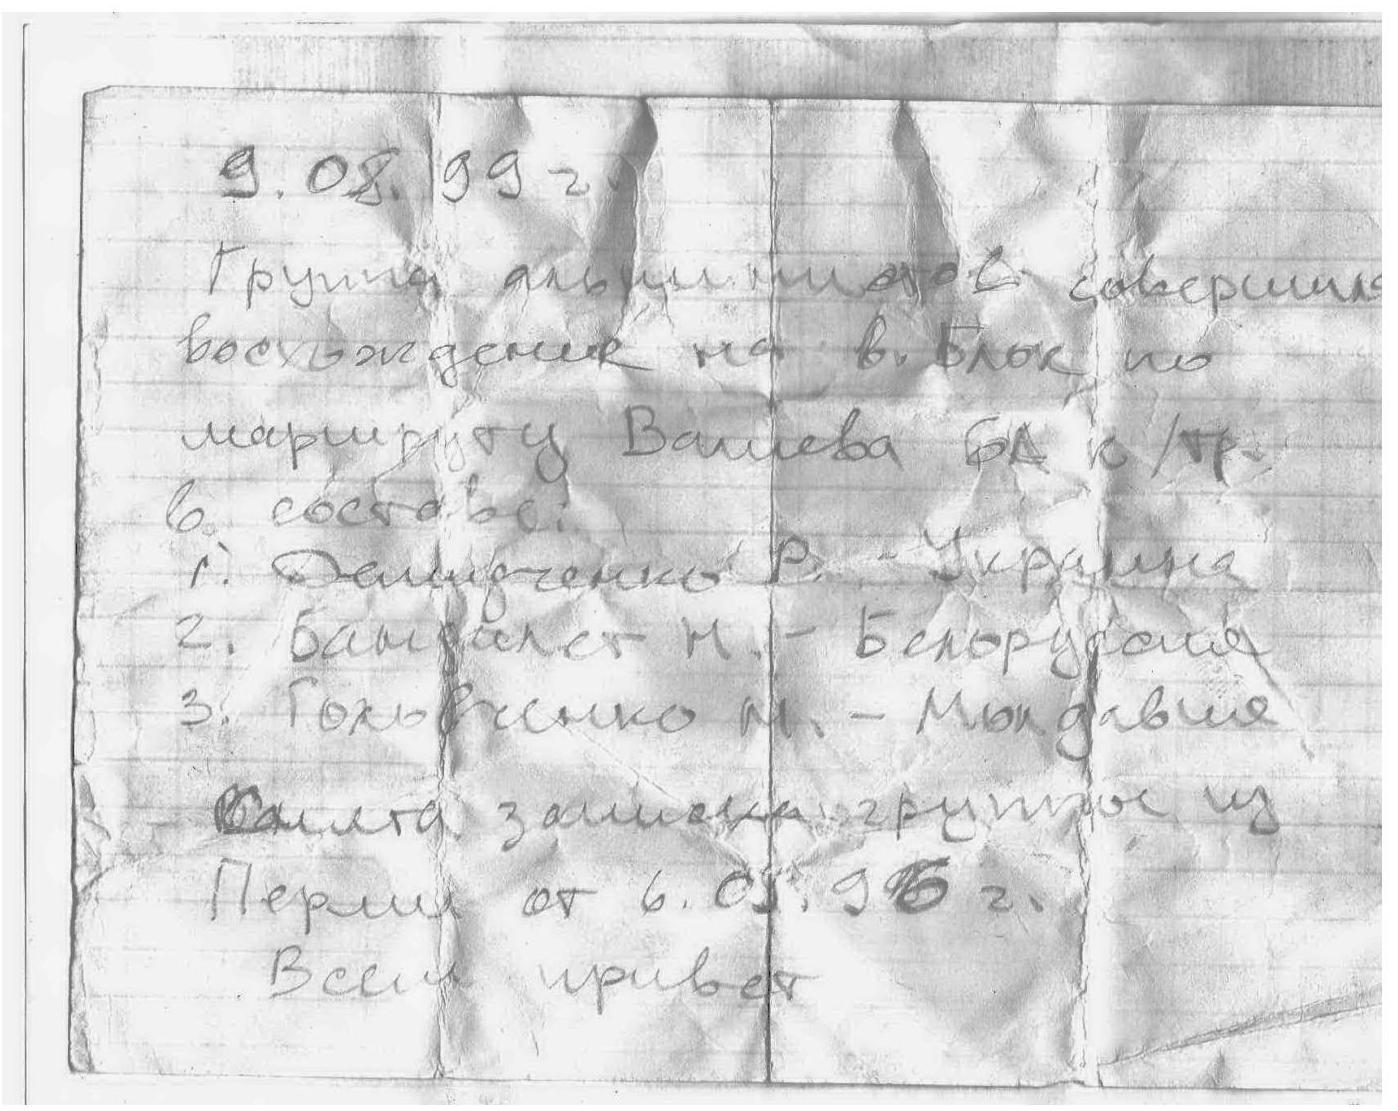 9.08.99 г.
Группа альпинистов совершила
восхождение на в. Блок по
маршруту Валиева 6А к/тр.
в составе:
1. Демидченко Р. - Украина
2. Бандалет Н. - Белоруссия
3. Головченко М. - Молдавия
Снята записка группы из
Перми от 6.05.96 г.
Всем привет